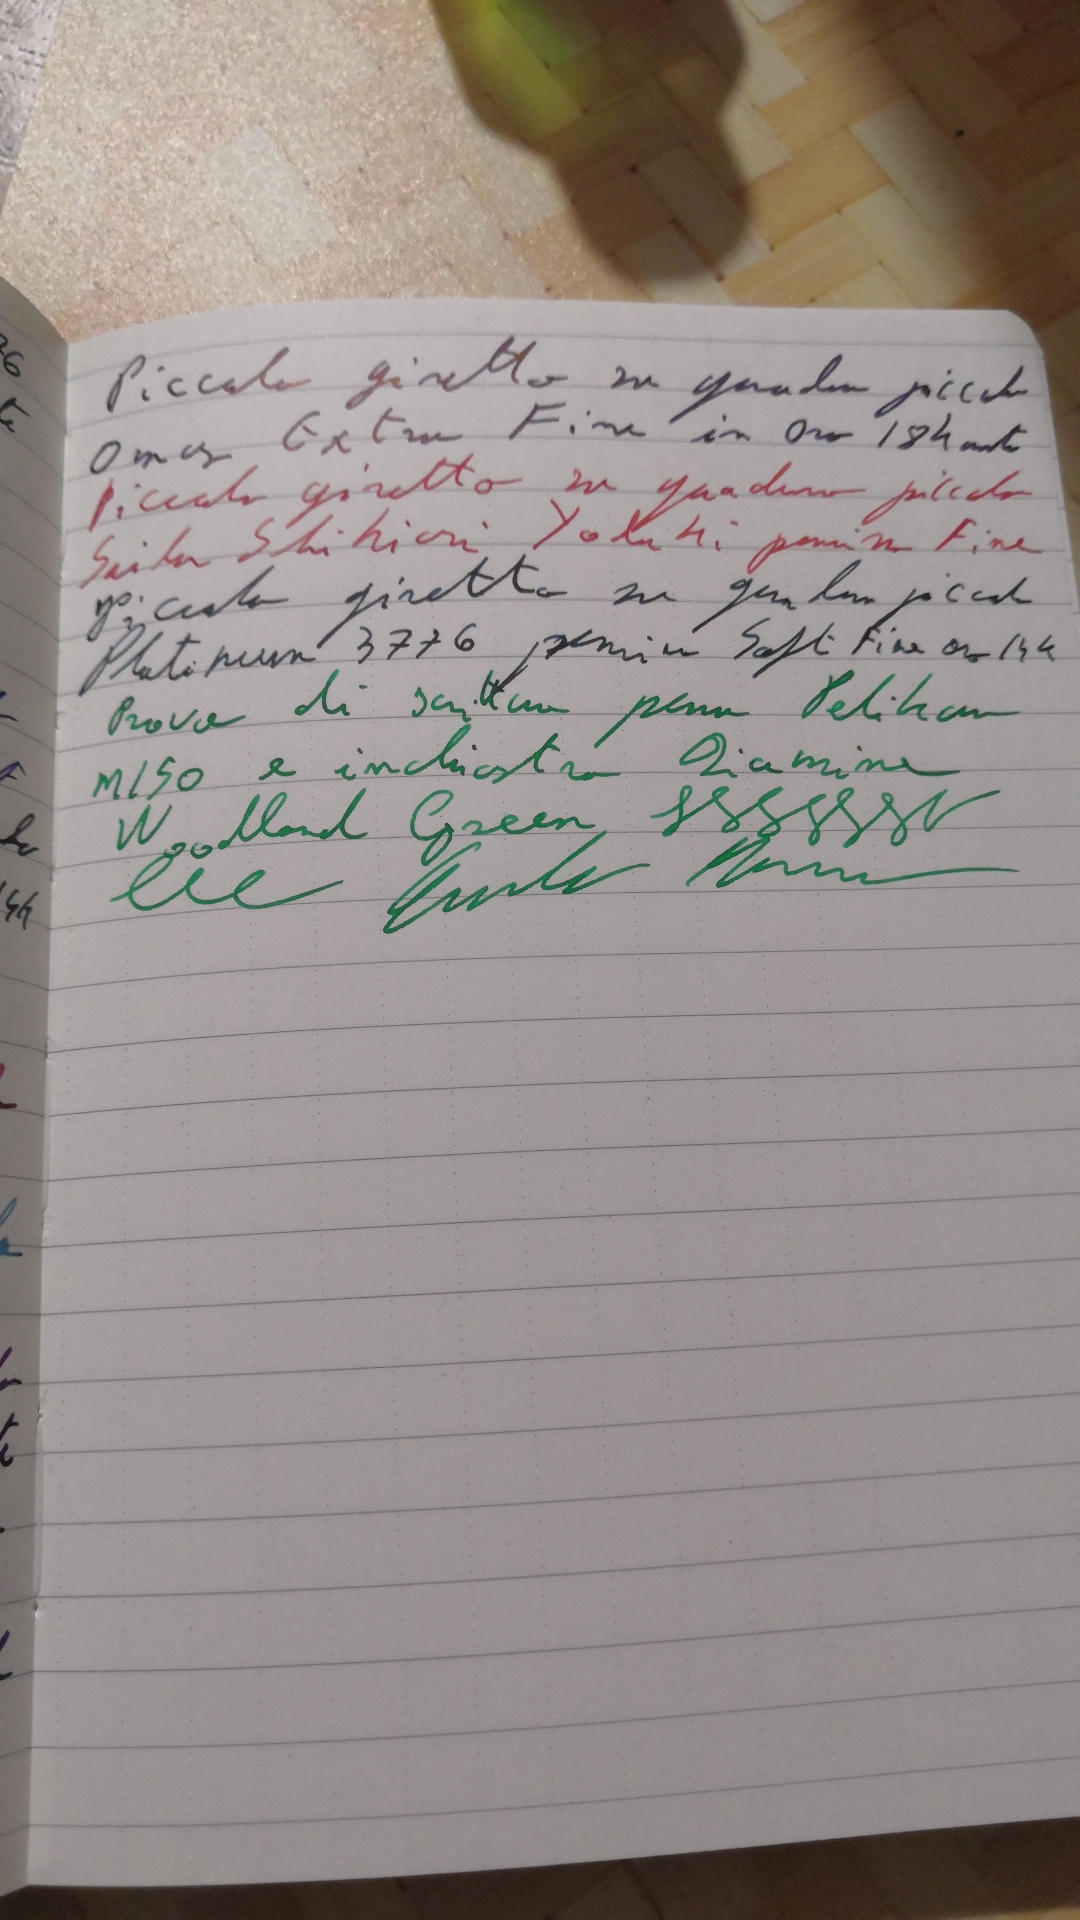 Piccolo giretto su quaderno piccolo
Omas Extra Fine in oro 18 karati
Piccolo giretto su quaderno piccolo
Sailor Shikiori Yozakura pennino Fine
Piccolo giretto su quaderno piccolo
Platinum 3776 pennino Soft Fine oro 14k
Prova di scrittura penna Pelikan
M150 e inchiostro Diamine
Woodland Green